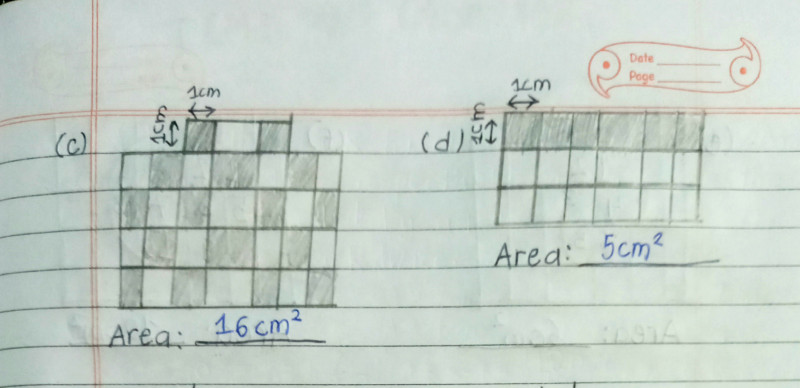 Date
Page
1cm
1cm
(c)
Area: 16cm²
1cm
1cm
(d)
Area: 5cm²